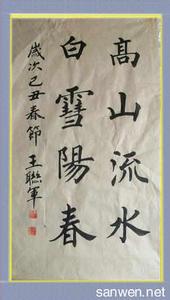 高山流水
白雪陽春
歲次己丑春節 王聯軍
sanwen.net